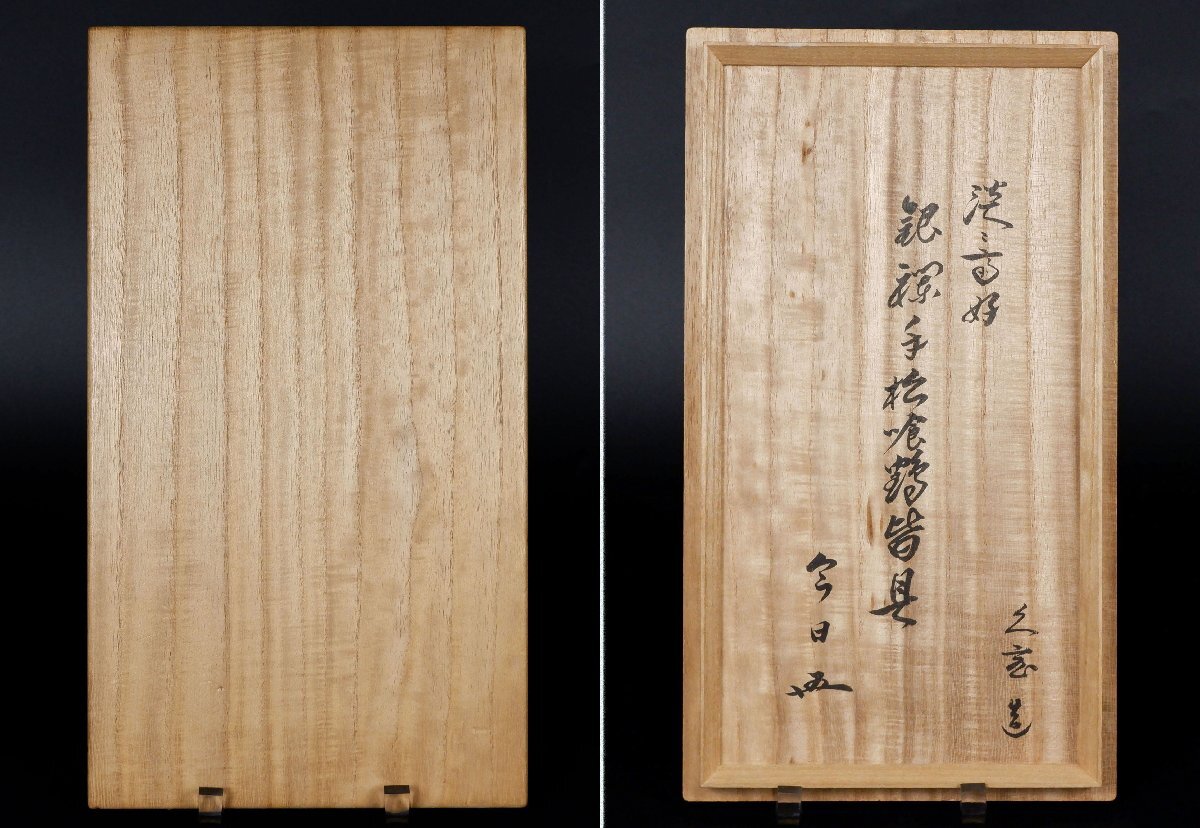 久宝造
淡々斎好
銀襴手松喰鶴皆具
今日